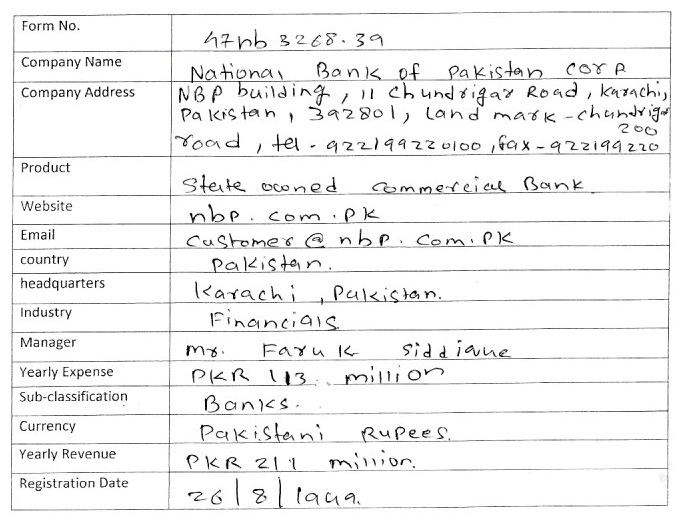 Form No. 47nb 3268.39
Company Name National Bank of Pakistan corp
Company Address NBP building, 11 chundrigar Road, Karachi,
Pakistan, 392801, Land mark - chundrigar
road, tel - 922199220100, fax - 922199220
200
Product State owned commercial Bank
Website nbp.com.pk
Email customer@nbp.com.pk
country Pakistan.
headquarters Karachi, Pakistan.
Industry Financials
Manager mr. Faruk Siddique
Yearly Expense PKR 113 million
Sub-classification Banks.
Currency Pakistani Rupees.
Yearly Revenue PKR 211 million.
Registration Date 26/8/1949.